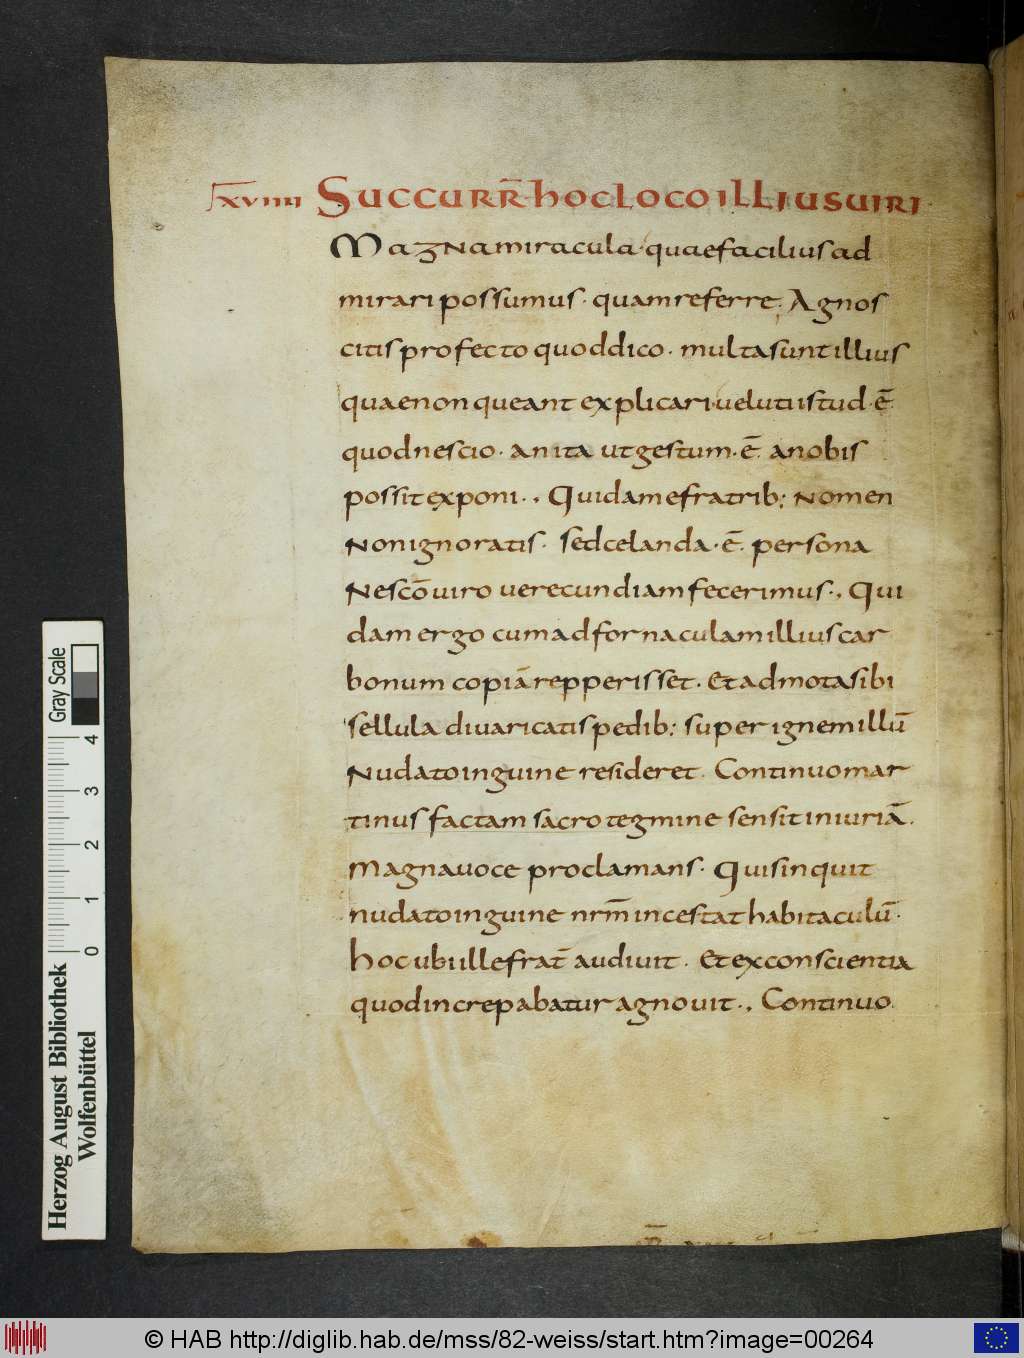 xviiii Succurr̄ hoc loco illius uiri
Magna miracula · quae facilius ad
mirari possumus · quam referre. Agnos
citis profecto quod dico · multa sunt illius
quae non queant explicari · uelut istud · ē.
quod nescio · an ita ut gestum · ē. a nobis
possit exponi · , Quidam e fratrib; nomen
non ignoratis · sed celanda · ē. persona
ne scō uiro uerecundiam fecerimus · , Qui
dam ergo cum ad fornaculam illius car
bonum copiā repperisset · Et admota sibi
sellula diuaricatis pedib; super ignem illū
nudato inguine resideret · Continuo mar
tinus factam sacro tegmine sensit iniuriā .
Magna uoce proclamans · Quis inquit
nudato inguine nr̄m incestat habitaculū ·
hoc ubi ille frat̄ audiuit · Et ex conscientia
quod increpabatur agnouit · , Continuo
Gray Scale
4
3
2
1
0
Herzog August Bibliothek
Wolfenbüttel
© HAB http://diglib.hab.de/mss/82-weiss/start.htm?image=00264